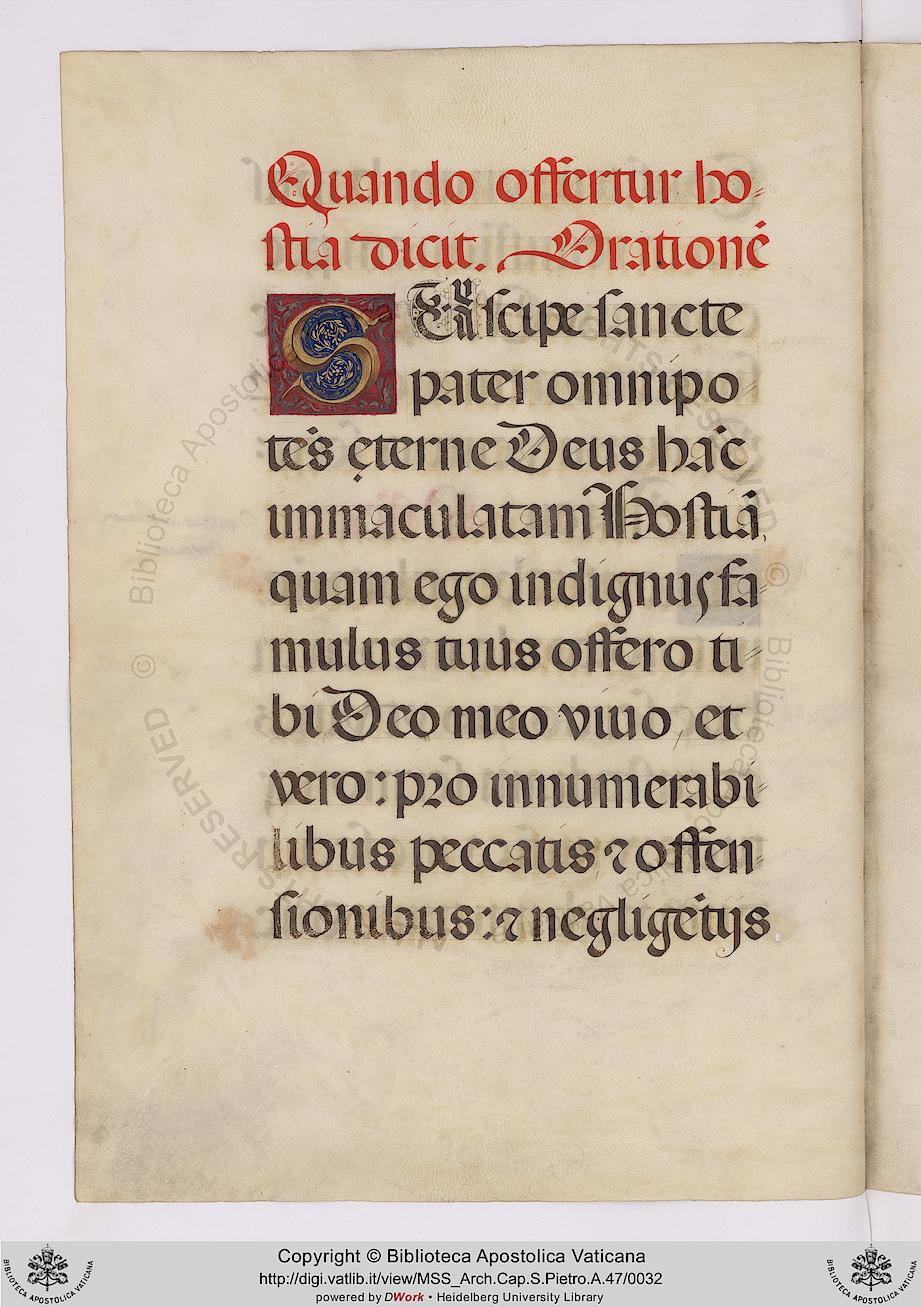 Quando offertur ho-
stia dicit. Orationē
SUscipe sancte
pater omnipo-
tēs ęterne Deus hāc
immaculatam Hostiā,
quam ego indignus fa-
mulus tuus offero ti-
bi Deo meo viuo, et
vero: pro innumerabi-
libus peccatis ⁊ offen-
sionibus: ⁊ negligētijs
© Biblioteca Apostolica
RESERVED
© Biblioteca
Copyright © Biblioteca Apostolica Vaticana
http://digi.vatlib.it/view/MSS_Arch.Cap.S.Pietro.A.47/0032
powered by DWork • Heidelberg University Library
BIBLIOTECA APOSTOLICA VATICANA
BIBLIOTECA APOSTOLICA VATICANA